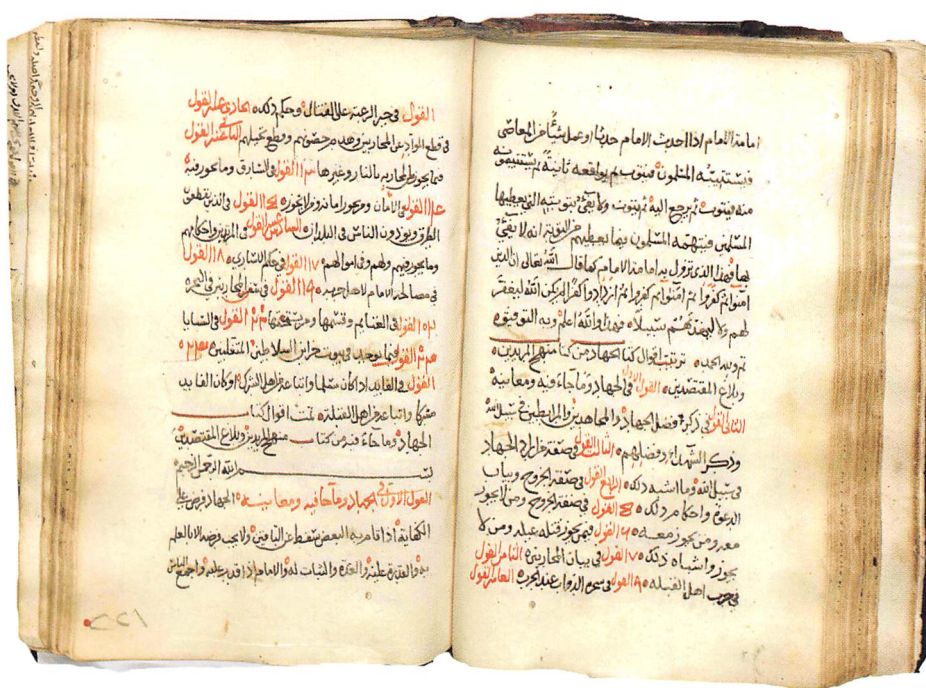 امامة الامام اذا احدث الامام حدثا او عمل شيئا من المعاصي
فيستتيبه المسلمون فيتوب ثم يواقعه ثانية ثم يستتيبونه
منه فيتوب ثم يرجع اليه ثم يتوب ولا يفيء بتوبته التي يعطيها
المسلمين فيتهمه المسلمون بما يعطيهم من التوبة انه لا يفي
بها فهذا الذي تزول به امامة الامام كما قال الله تعالى ان الذين
امنوا ثم كفروا ثم امنوا ثم كفروا ثم ازدادوا كفرا لم يكن الله ليغفر
لهم ولا ليهديهم سبيلا فهذا والله اعلم وبه التوفيق
تم ولله الحمد ترتيب اقوال كتاب الجهاد من كتاب منهج المريدين
وبلاغ المقتصدين القول الاول في الجهاد وما جاء فيه ومعانيه
الثاني القول في ذكر فضل الجهاد والمجاهدين والمرابطين في سبيل الله
وذكر الشهداء وفضلهم الثالث القول في صفة من اراد الجهاد
في سبيل الله وما اشبه ذلك الرابع القول في صفة الخروج وبيان
الدعوة واحكام ذلك القول في صفة الخروج ومن لا يجوز
معه ومن يجوز معه ٦ القول فيمن يجوز قتله عبد ومن لا
يجوز واشباه ذلك ٧ القول في بيان المحاربين الثامن القول
في حرب اهل القبلة ٩ القول في الدواب عند الحرب العاشر القول
القول في جبر الرعية على القتال وحكم ذلك الحادي عشر القول
في قطع المواد عن المحاربين وهدم حصونهم وقطع نخيلهم الثاني عشر القول
فيما يجوز من المحاربة بالنار وغيرها ١٣ القول في السارق وما يجوز فيه
١٤ القول في الامان ومن يجوز امانه ومن لا يجوز القول في الذين يقطعون
الطرق ويؤذون الناس في البلدان السادس عشر القول في المرتدين واحكامهم
وما يجوز فيهم ولهم وفي اموالهم ١٧ القول في حكم الاسارى ١٨ القول
في مصالحة الامام لاهل حربه ١٩ القول في المحاربين في البحر
القول في الغنايم وقسمها القول في السبايا
القول فيما يوجد في بيوت خزاين السلاطين المتغلبين
القول في القايد اذا كان مسلما واتباعه من اهل الشرك او كان القايد
مشركا واتباعه من اهل القبلة تمت اقوال كتاب
الجهاد وما جاء فيه من كتاب منهج المريدين وبلاغ المقتصدين
بسم الله الرحمن الرحيم
القول الاول في الجهاد وما جاء فيه ومعانيه الجهاد فرض على
الكفاية اذا قام به البعض سقط عن الباقين ولا يجب فرضه الا بالعلم
به والقدرة عليه والعدة والثبات له والامام اذا قدر عليه واجمع الناس